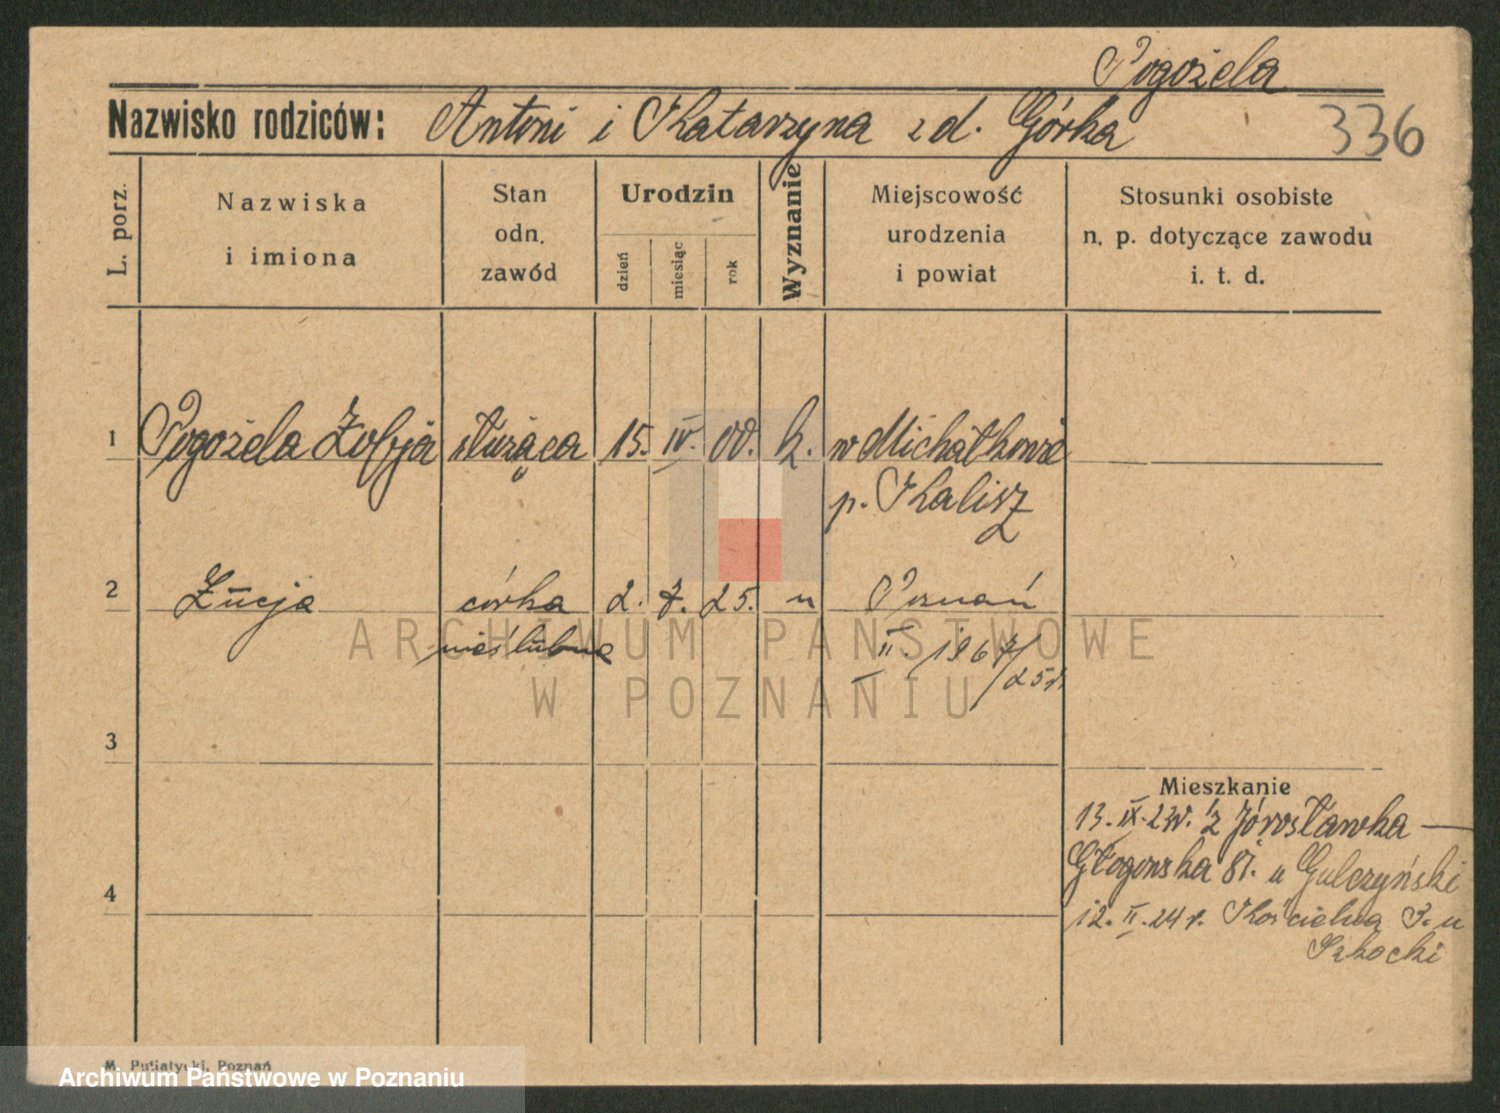 Pogożela
Nazwisko rodziców: Antoni i Katarzyna z d. Górka 336
L. porz.
Nazwiska
i imiona
Stan
odn.
zawód
Urodzin
dzień
miesiąc
rok
Wyznanie
Miejscowość
urodzenia
i powiat
Stosunki osobiste
n. p. dotyczące zawodu
i. t. d.
1 Pogożela Zofja służąca 15. IV. 00. k. w Michałkowie
p. Kalisz
2 Łucja córka 2. 7. 25. " Poznań
nieślubna II. 1967/25r.
3
Mieszkanie
13. IX. 23r. z Jarosławka —
Głogowska 81. u Gulczyński
4
12. II. 24r. Kościelna 3. u
ARCHIWUM PAŃSTWOWE
W POZNANIU
M. Putiatycki, Poznań
Archiwum Państwowe w Poznaniu